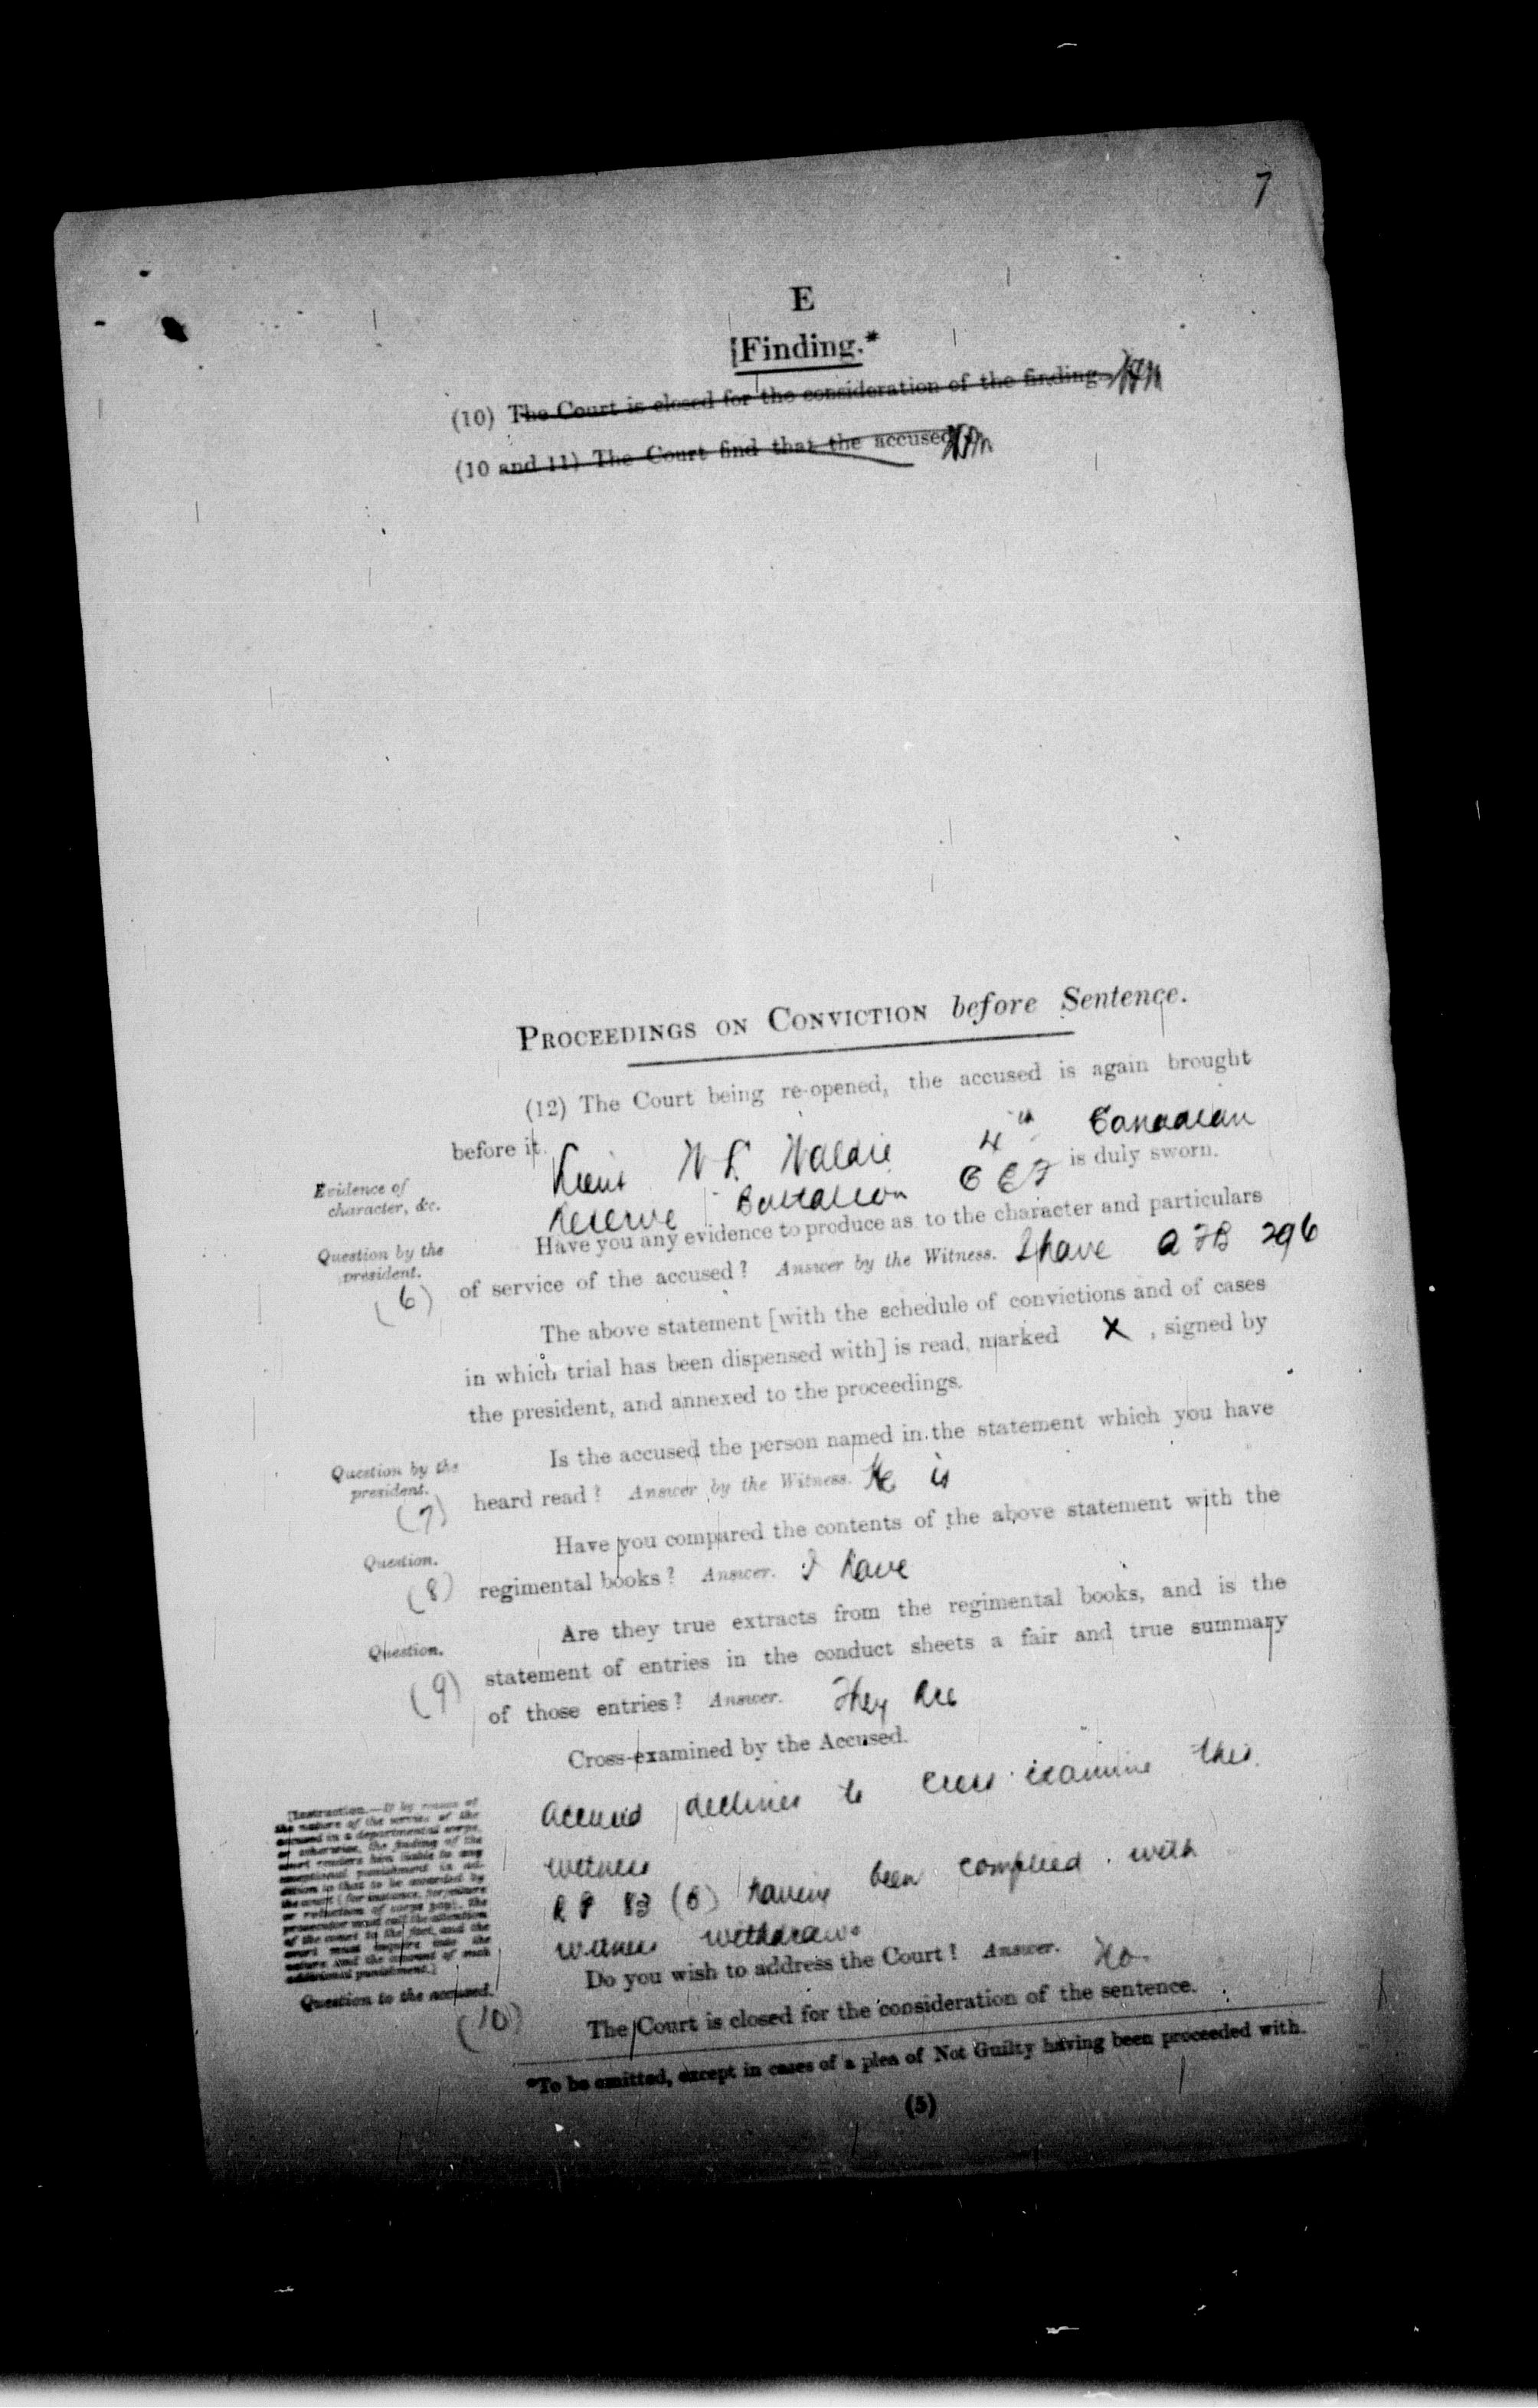 7
E
[Finding.*
(10) The Court is closed for the consideration of the finding.
(10 and 11) The Court find that the accused
PROCEEDINGS ON CONVICTION before Sentence.
(12) The Court being re-opened, the accused is again brought
before it.
Lieut W L Waldie 4th Canadian
Evidence of character, &c.
Reserve Battalion C E F is duly sworn.
Question by the president.
(6)
Have you any evidence to produce as to the character and particulars
of service of the accused? Answer by the Witness. I have A F B 296
The above statement [with the schedule of convictions and of cases
in which trial has been dispensed with] is read, marked X , signed by
the president, and annexed to the proceedings.
Question by the president.
(7)
Is the accused the person named in the statement which you have
heard read? Answer by the Witness. He is
Question.
(8)
Have you compared the contents of the above statement with the
regimental books? Answer. I have
Question.
(9)
Are they true extracts from the regimental books, and is the
statement of entries in the conduct sheets a fair and true summary
of those entries? Answer. They are
Cross-examined by the Accused.
Accused declines to cross examine this
witness
R P 83 (B) having been complied with
witness withdraws
[Instruction.—If by reason of
the nature of the service of the
accused in a departmental corps,
or otherwise, the finding of the
court renders him liable to any
exceptional punishment in ad-
dition to that to be awarded by
the court (for instance, forfeiture
or reduction of corps pay), the
prosecutor must call the attention
of the court to the fact, and the
court must inquire into the
nature and the amount of such
additional punishment.]
Question to the accused.
(10)
Do you wish to address the Court? Answer. No.
The Court is closed for the consideration of the sentence.
*To be omitted, except in cases of a plea of Not Guilty having been proceeded with.
(5)